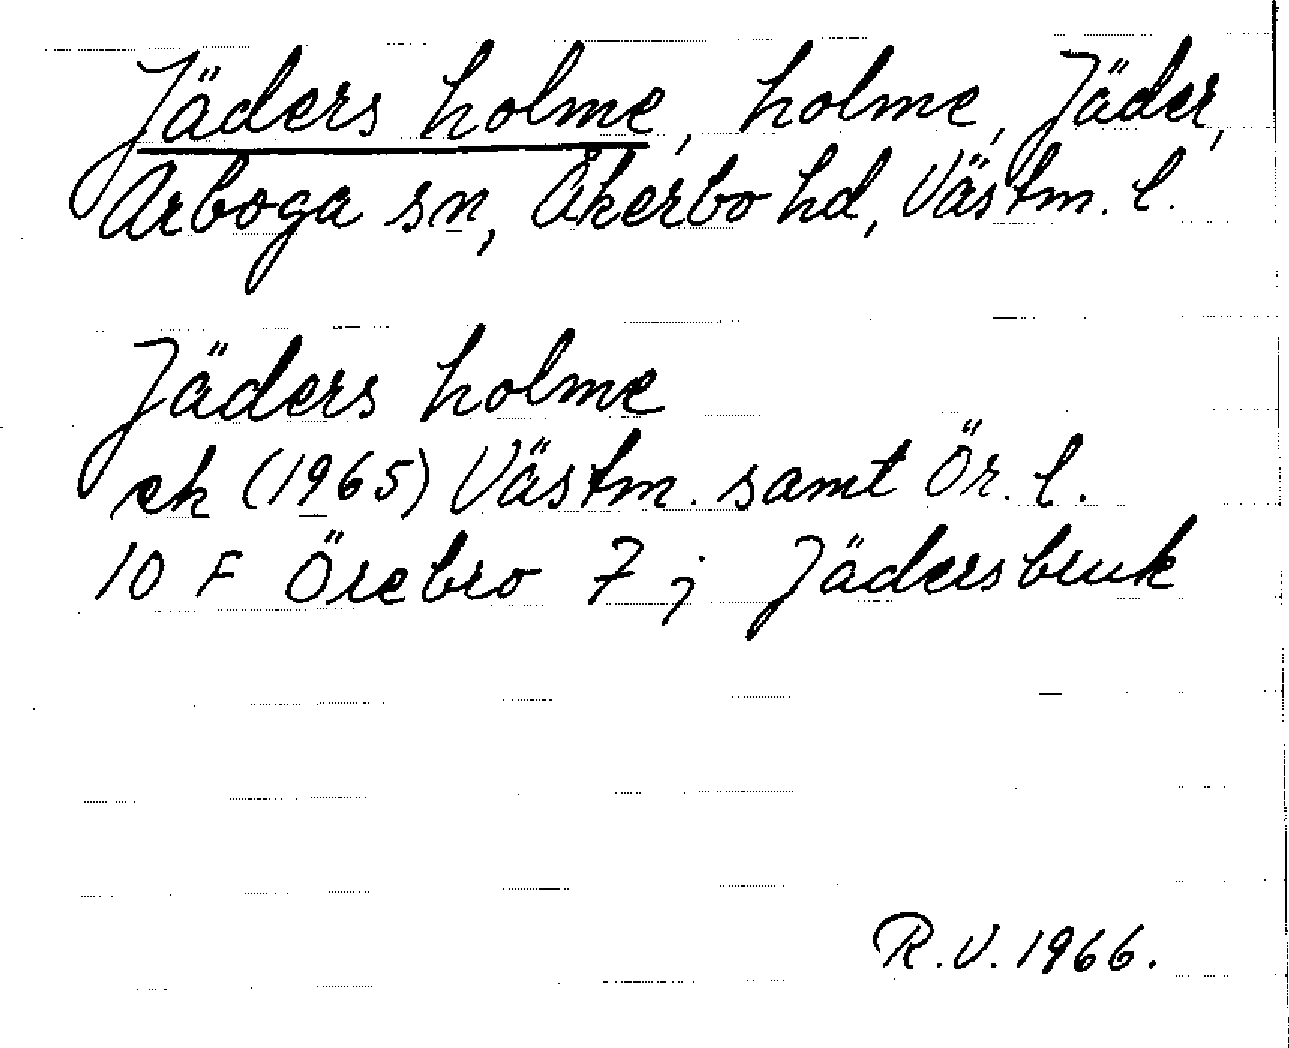 Jäders holme, holme, Jäder,
Arboga sn, Åkerbo hd, Västm. l.
Jäders holme
ek (1965) Västm. samt Ör. l.
10 F Örebro 7 j Jädersbruk
R.V. 1966.